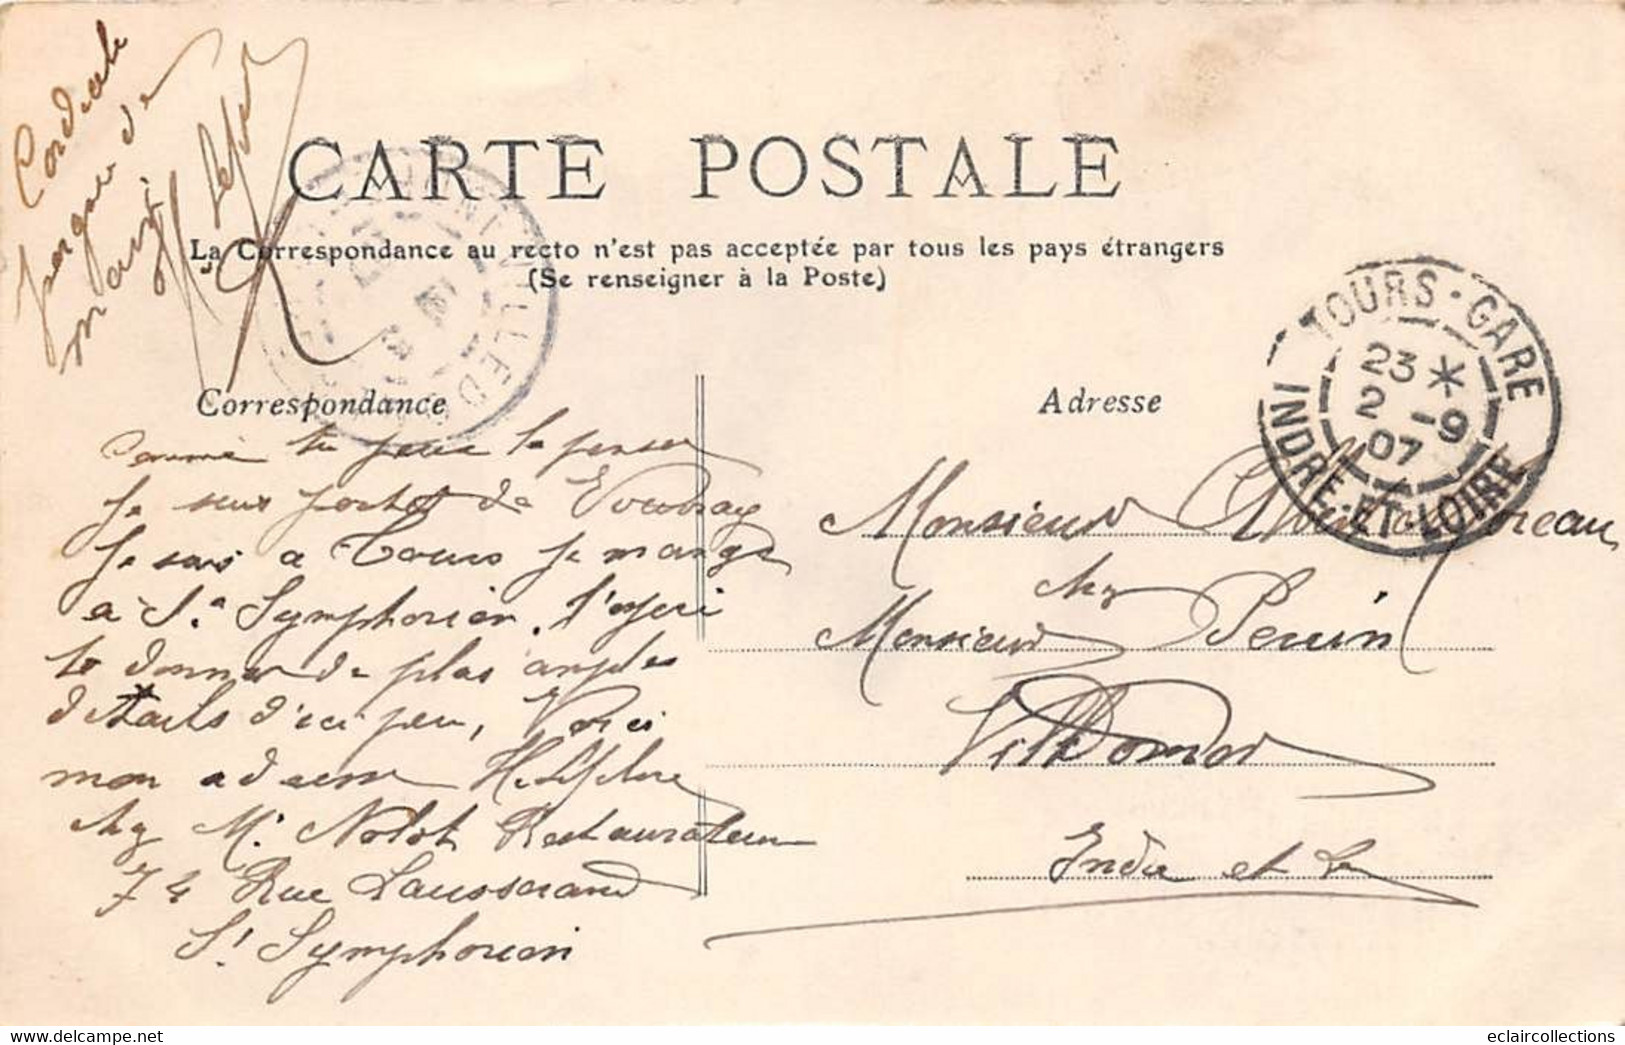 Cordiale
poignée de
main
H Lefebvre
CARTE POSTALE
La Correspondance au recto n'est pas acceptée par tous les pays étrangers
(Se renseigner à la Poste)
Correspondance
Adresse
TOURS-GARE
23 *
2 -9
07
INDRE-ET-LOIRE
comme tu peux le penser
je suis parti de Vouvray
je suis a Tours je mange
a St Symphorien. J'esperi
te donner de plus amples
détails d'ici peu, Voici
mon adresse H. Lefebvre
chez Mr Nolot Restaurateur
74 Rue Losserand
St Symphorien
Monsieur Moreau
chez
Monsieur Perrin
Villedomer
Indre et L
www.delcampe.net
eclaircollections